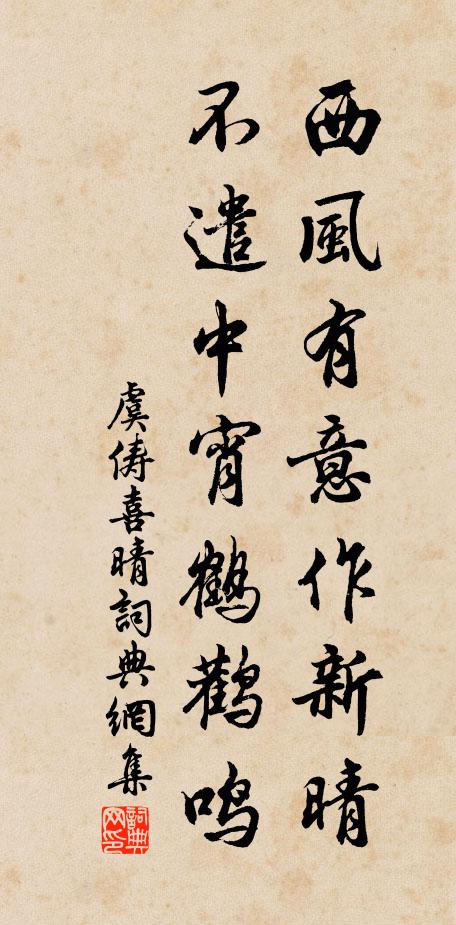 西風有意作新晴
不遣中宵鶴鸛鳴
虞俦喜晴詞典網集
詞典网印